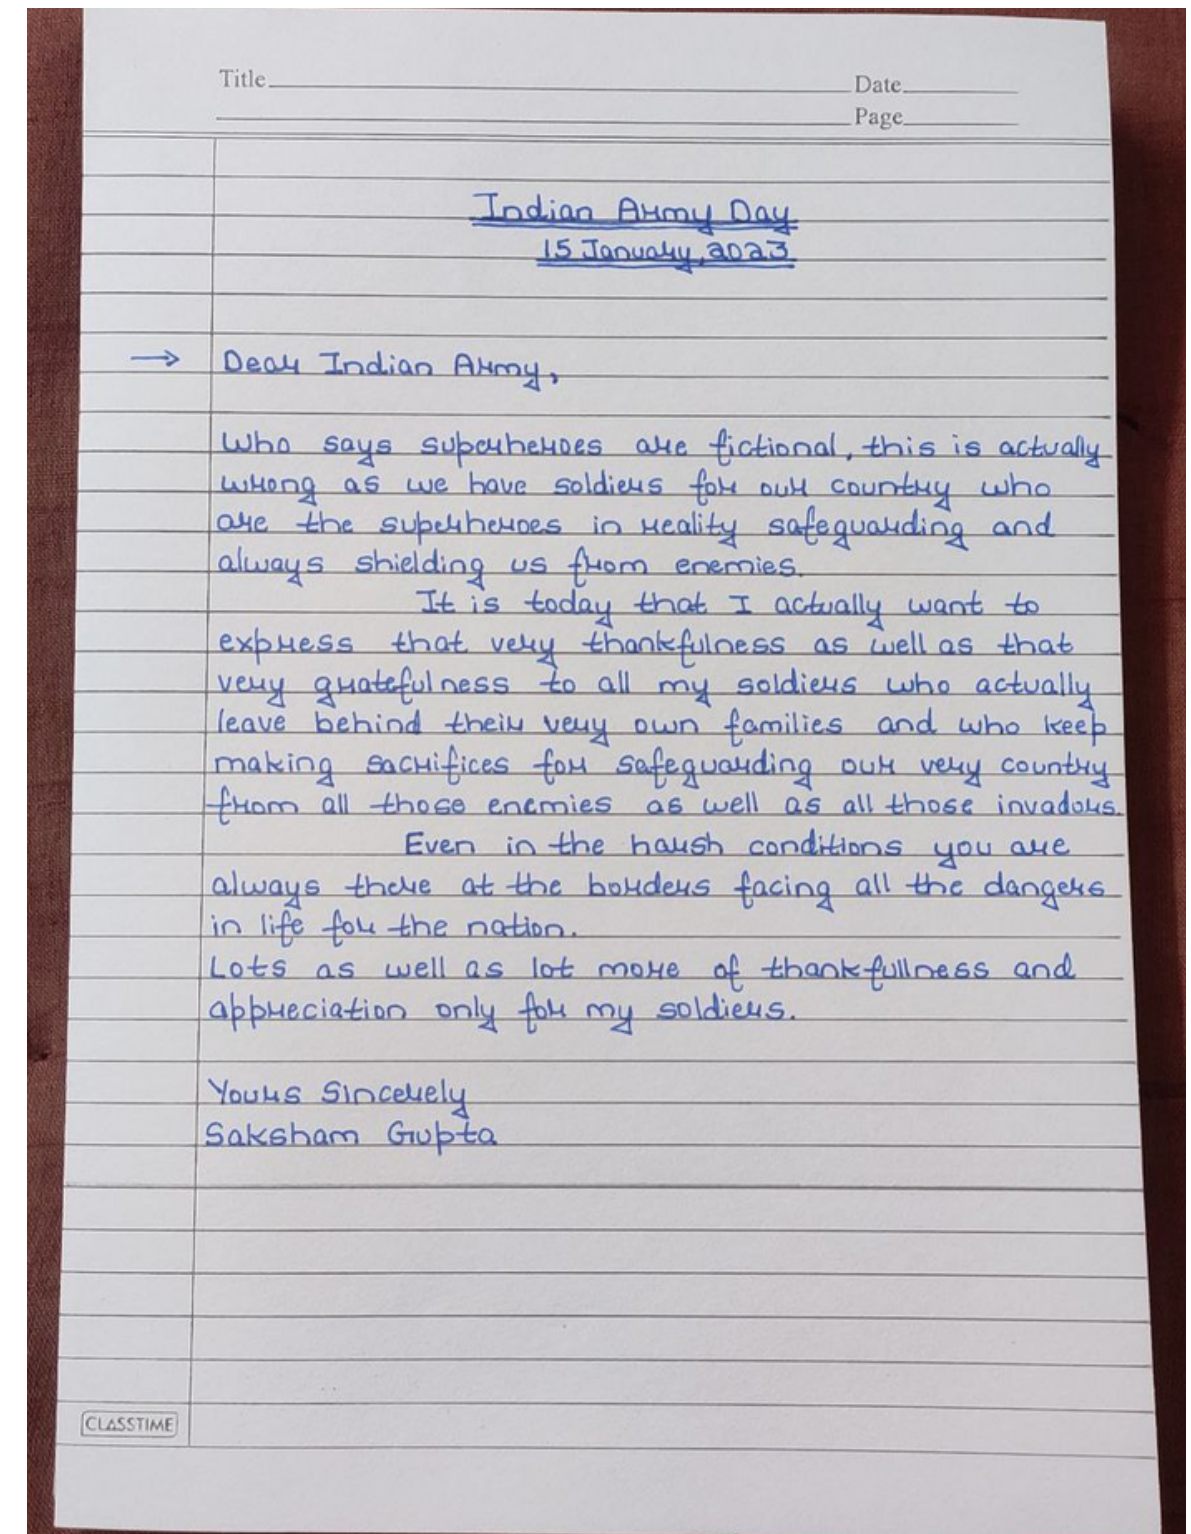 Title
Date
Page
Indian Army Day
15 January, 2023
→ Dear Indian Army,
Who says superheroes are fictional, this is actually
wrong as we have soldiers for our country who
are the superheroes in reality safeguarding and
always shielding us from enemies.
It is today that I actually want to
express that very thankfulness as well as that
very gratefulness to all my soldiers who actually
leave behind their very own families and who keep
making sacrifices for safeguarding our very country
from all those enemies as well as all those invadors.
Even in the harsh conditions you are
always there at the borders facing all the dangers
in life for the nation.
Lots as well as lot more of thankfullness and
appreciation only for my soldiers.
Yours Sincerely
Saksham Gupta
CLASSTIME